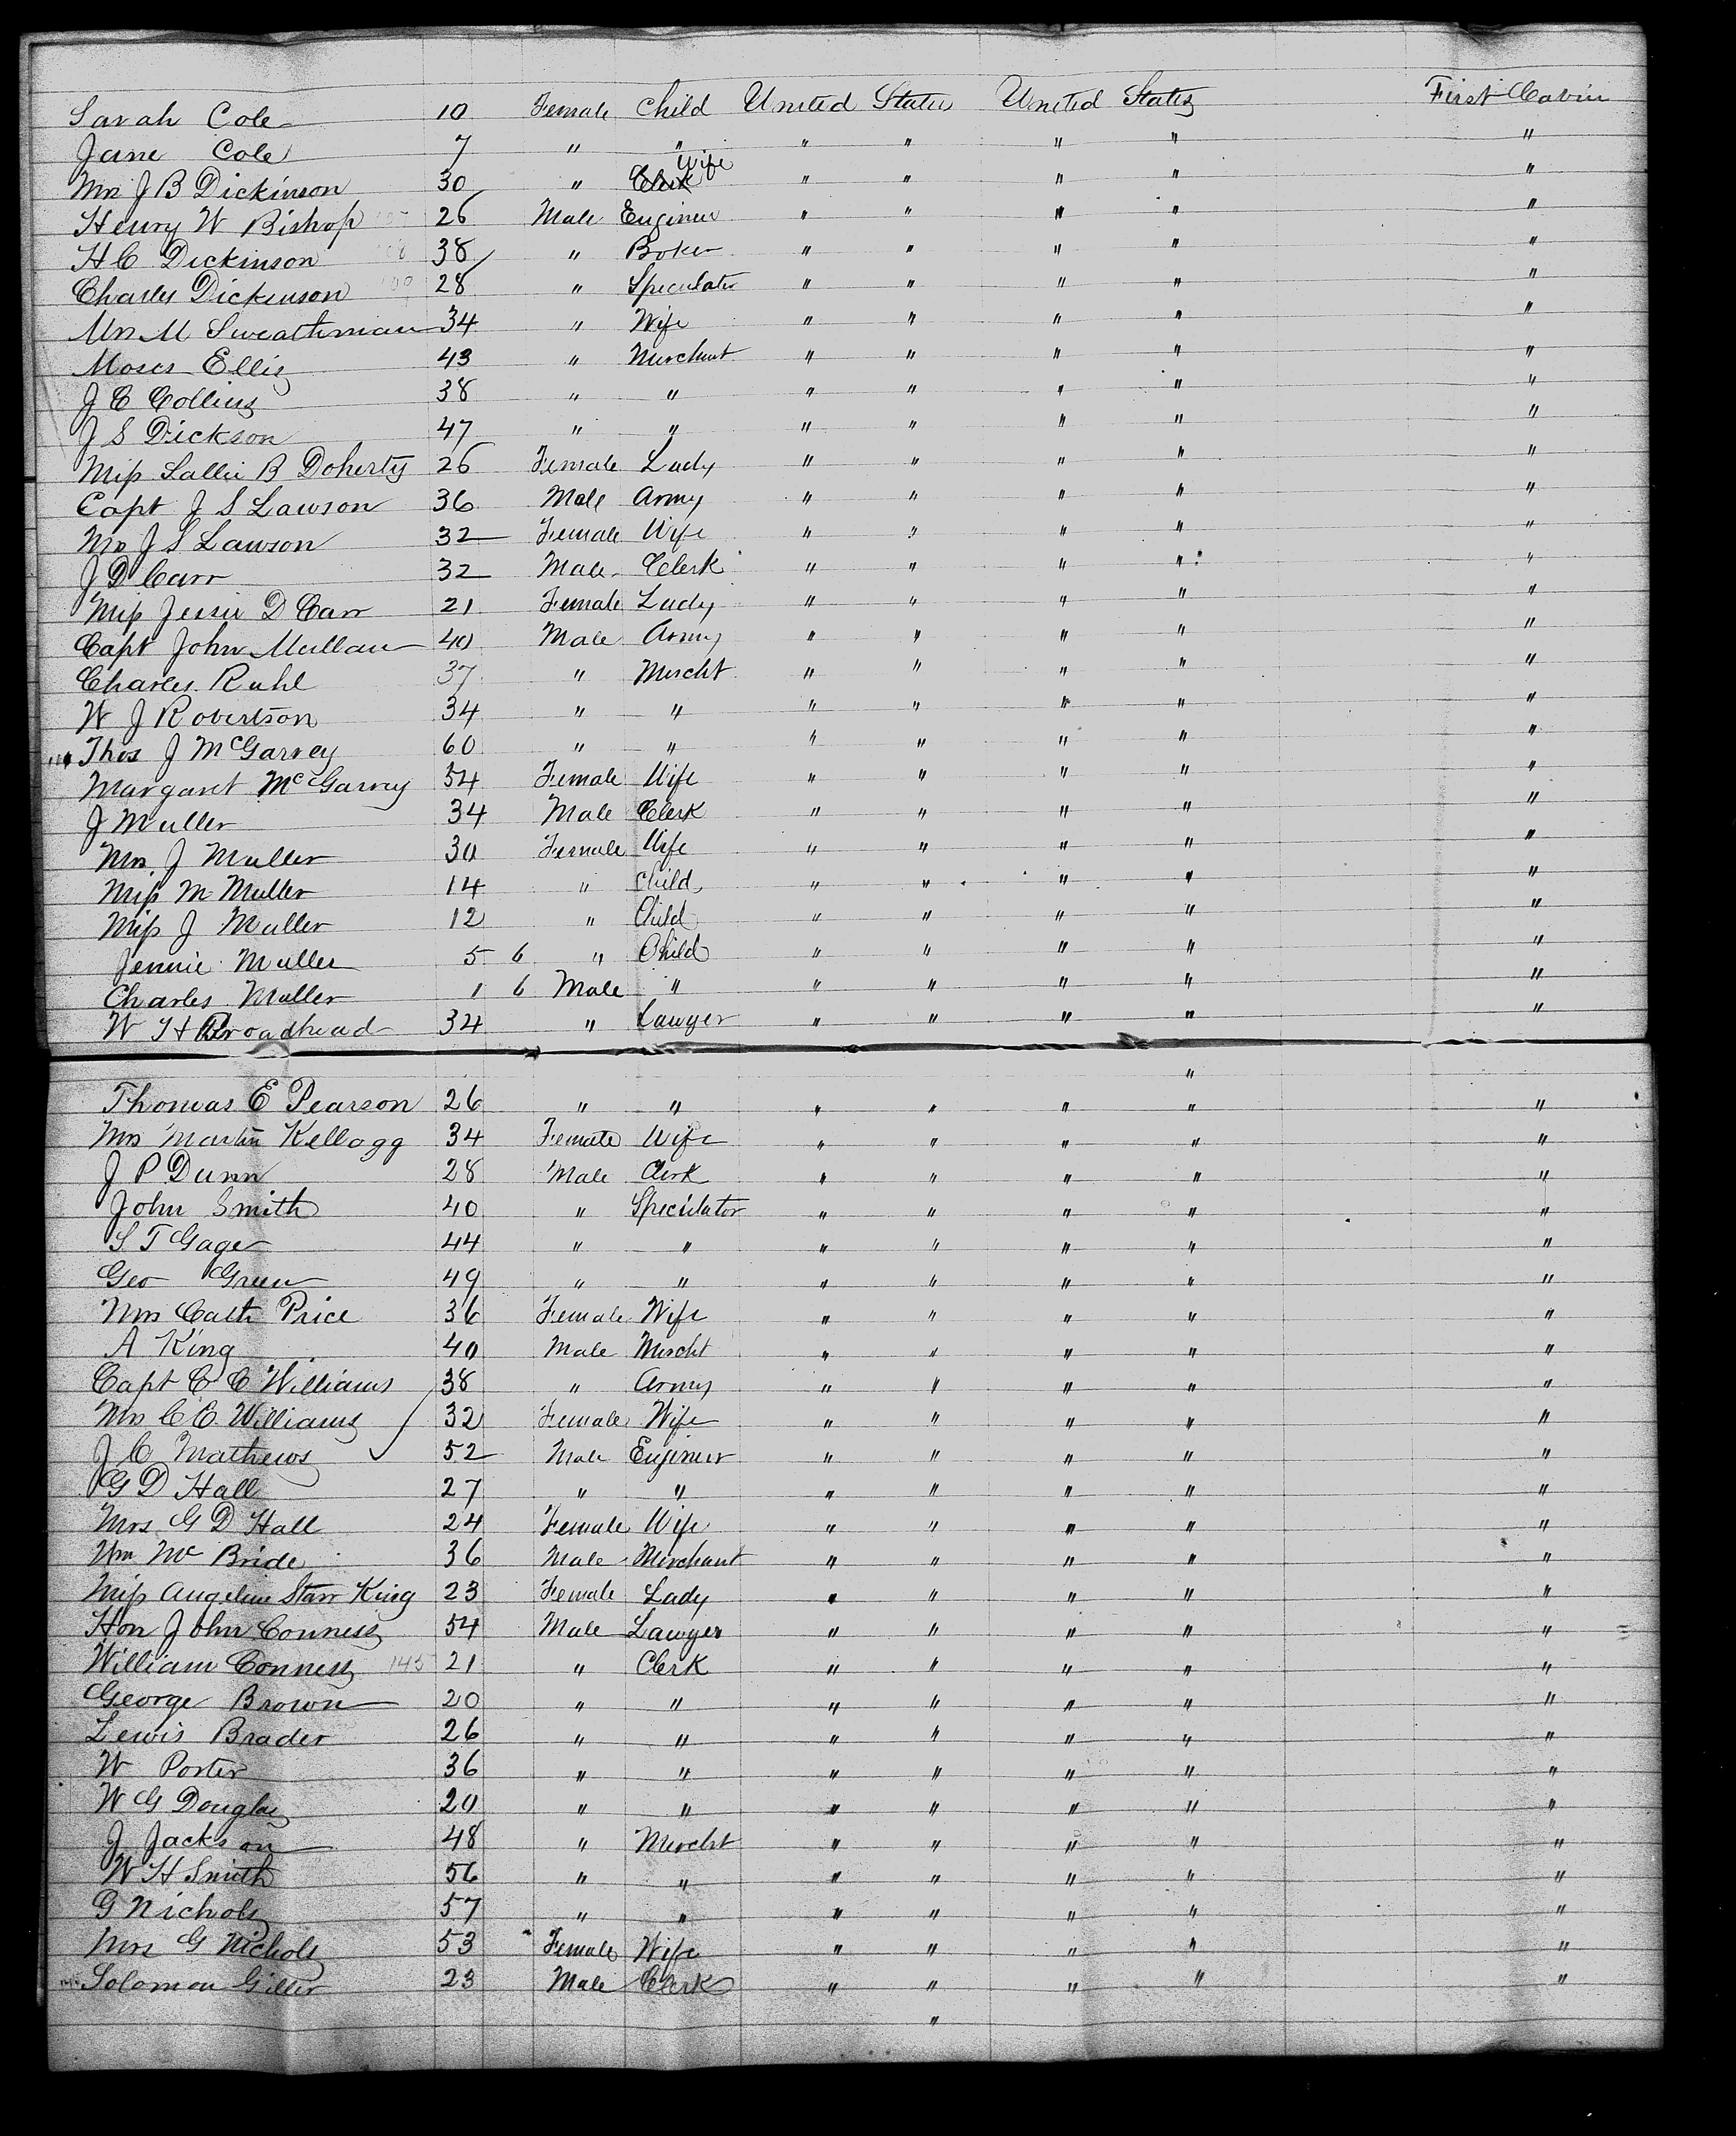 Sarah Cole 10 Female Child United States United States First Cabin
Jane Cole 7 " " " " " " "
Mrs J B Dickinson 30 " Clerk Wife " " " " "
Henry W Bishop 26 Male Engineer " " " " "
H C Dickinson 38 " Boker " " " " "
Charles Dickinson 28 " Speculator " " " " "
Mrs M Sweathman 34 " Wife " " " " "
Moses Ellis 43 " Merchant " " " " "
J C Collins 38 " " " " " " "
J S Dickson 47 " " " " " " "
Miss Sallie B Doherty 26 Female Lady " " " " "
Capt J S Lawson 36 Male Army " " " " "
Mrs J S Lawson 32 Female Wife " " " " "
J D Carr 32 Male Clerk " " " " "
Miss Jessie D Carr 21 Female Lady " " " " "
Capt John Mullan 40 Male Army " " " " "
Charles Ruhl 37 " Mercht " " " " "
W J Robertson 34 " " " " " " "
Thos J McGarvey 60 " " " " " " "
Margaret McGarvey 54 Female Wife " " " " "
J Muller 34 Male Clerk " " " " "
Mrs J Muller 30 Female Wife " " " " "
Miss M Muller 14 " Child " " " " "
Miss J Muller 12 " Child " " " " "
Jennie Muller 5 6 " Child " " " " "
Charles Muller 1 6 Male " " " " " "
W H Broadhead 34 " Lawyer " " " " "
"
Thomas E Pearson 26 " " " " " " "
Mrs Martin Kellogg 34 Female Wife " " " " "
J P Dunn 28 Male Clerk " " " " "
John Smith 40 " Speculator " " " " "
S T Gage 44 " " " " " " "
Geo Green 49 " " " " " " "
Mrs Cath Price 36 Female Wife " " " " "
A King 40 Male Mercht " " " " "
Capt C C Williams 38 " Army " " " " "
Mrs C C Williams 32 Female Wife " " " " "
J C Mathews 52 Male Engineer " " " " "
G D Hall 27 " " " " " " "
Mrs G D Hall 24 Female Wife " " " " "
Wm Mc Bride 36 Male Merchant " " " " "
Miss Angeline Starr King 23 Female Lady " " " " "
Hon John Conness 54 Male Lawyer " " " " "
William Conness 145 21 " Clerk " " " " "
George Brown 20 " " " " " " "
Lewis Brader 26 " " " " " " "
W Porter 36 " " " " " " "
W G Douglas 20 " " " " " " "
J Jackson 48 " Mercht " " " " "
W H Smith 56 " " " " " " "
G Nichols 57 " " " " " " "
Mrs G Nichols 53 Female Wife " " " " "
Solomon Giller 23 Male Clerk " " " " "
"